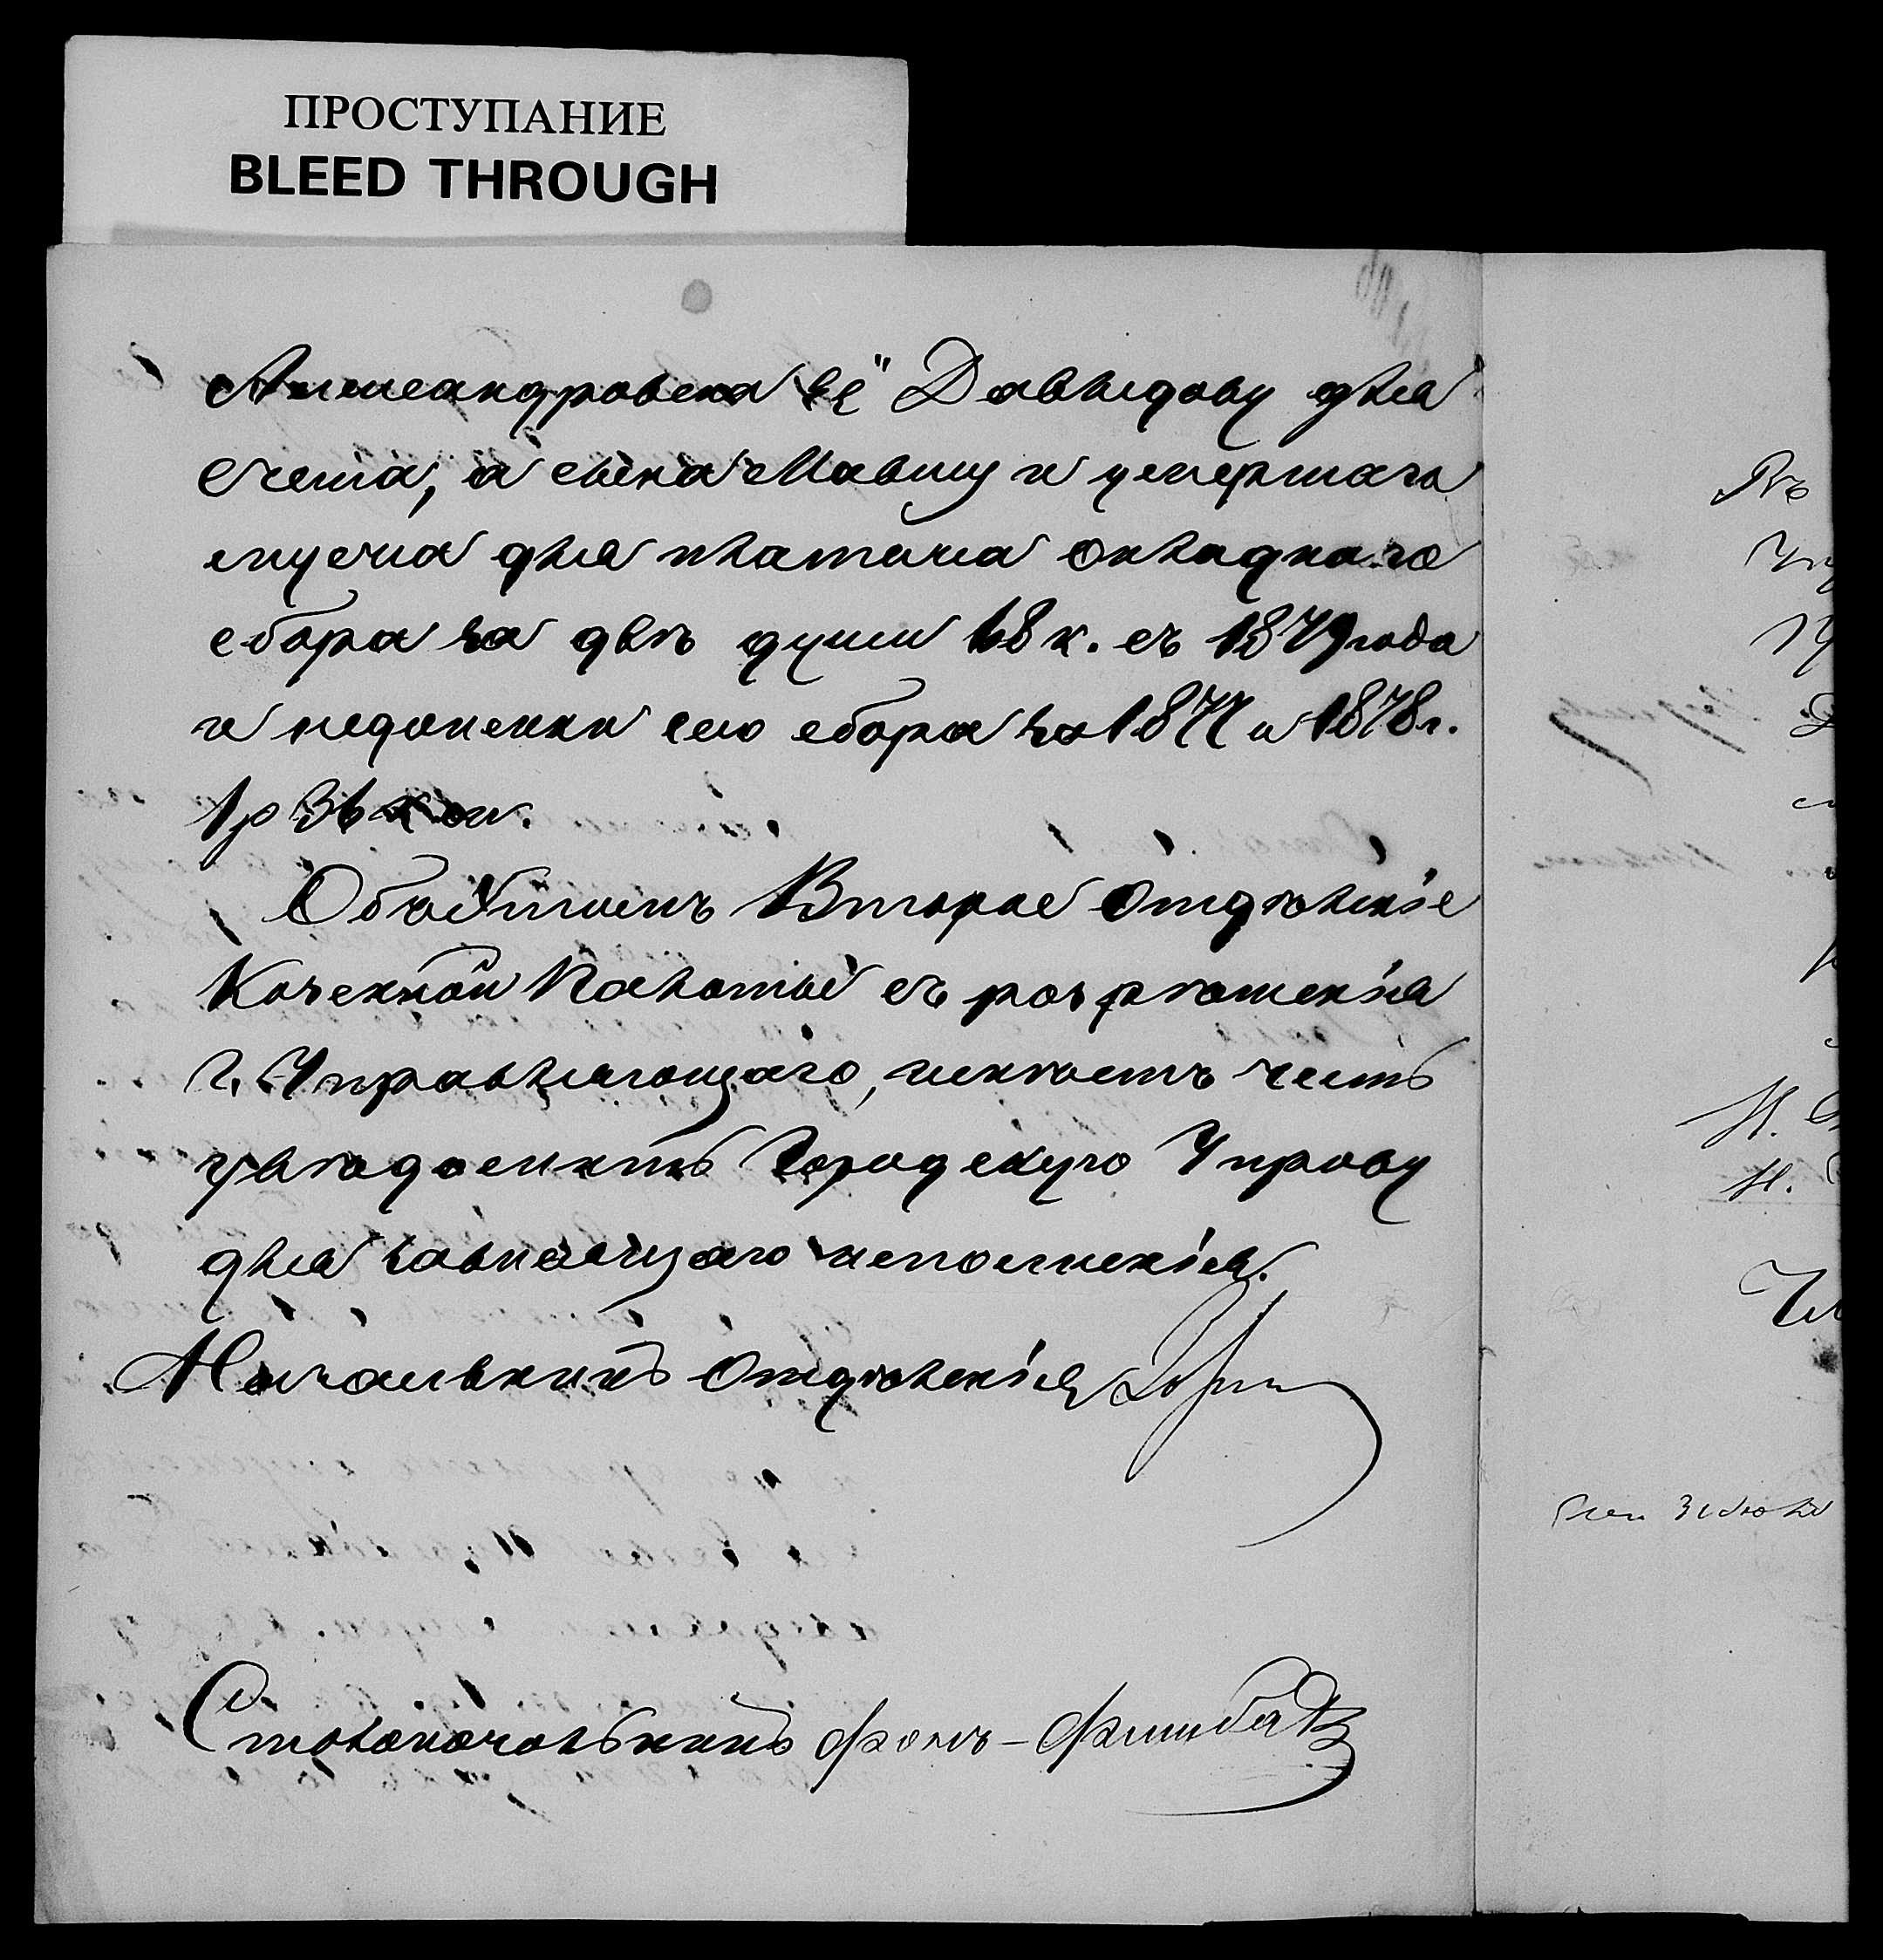 ПРОСТУПАНИЕ
BLEED THROUGH
Александровска её Давыдову для
счета, а сына Мовшу и умершаго
для платежа окладнаго
сбора за двѣ души 68 к. съ 1879 года
и недоимки сего сбора за 1877 и 1878 г.
1 р 36 коп.
Объ этомъ Второе Отдѣленіе
Казенной Палаты съ разрѣшенія
г. Управляющаго, имѣетъ честь
увѣдомить Городскую Управу
для зависящаго исполненія.
Начальникъ Отдѣленія
Столоначальникъ фонъ-